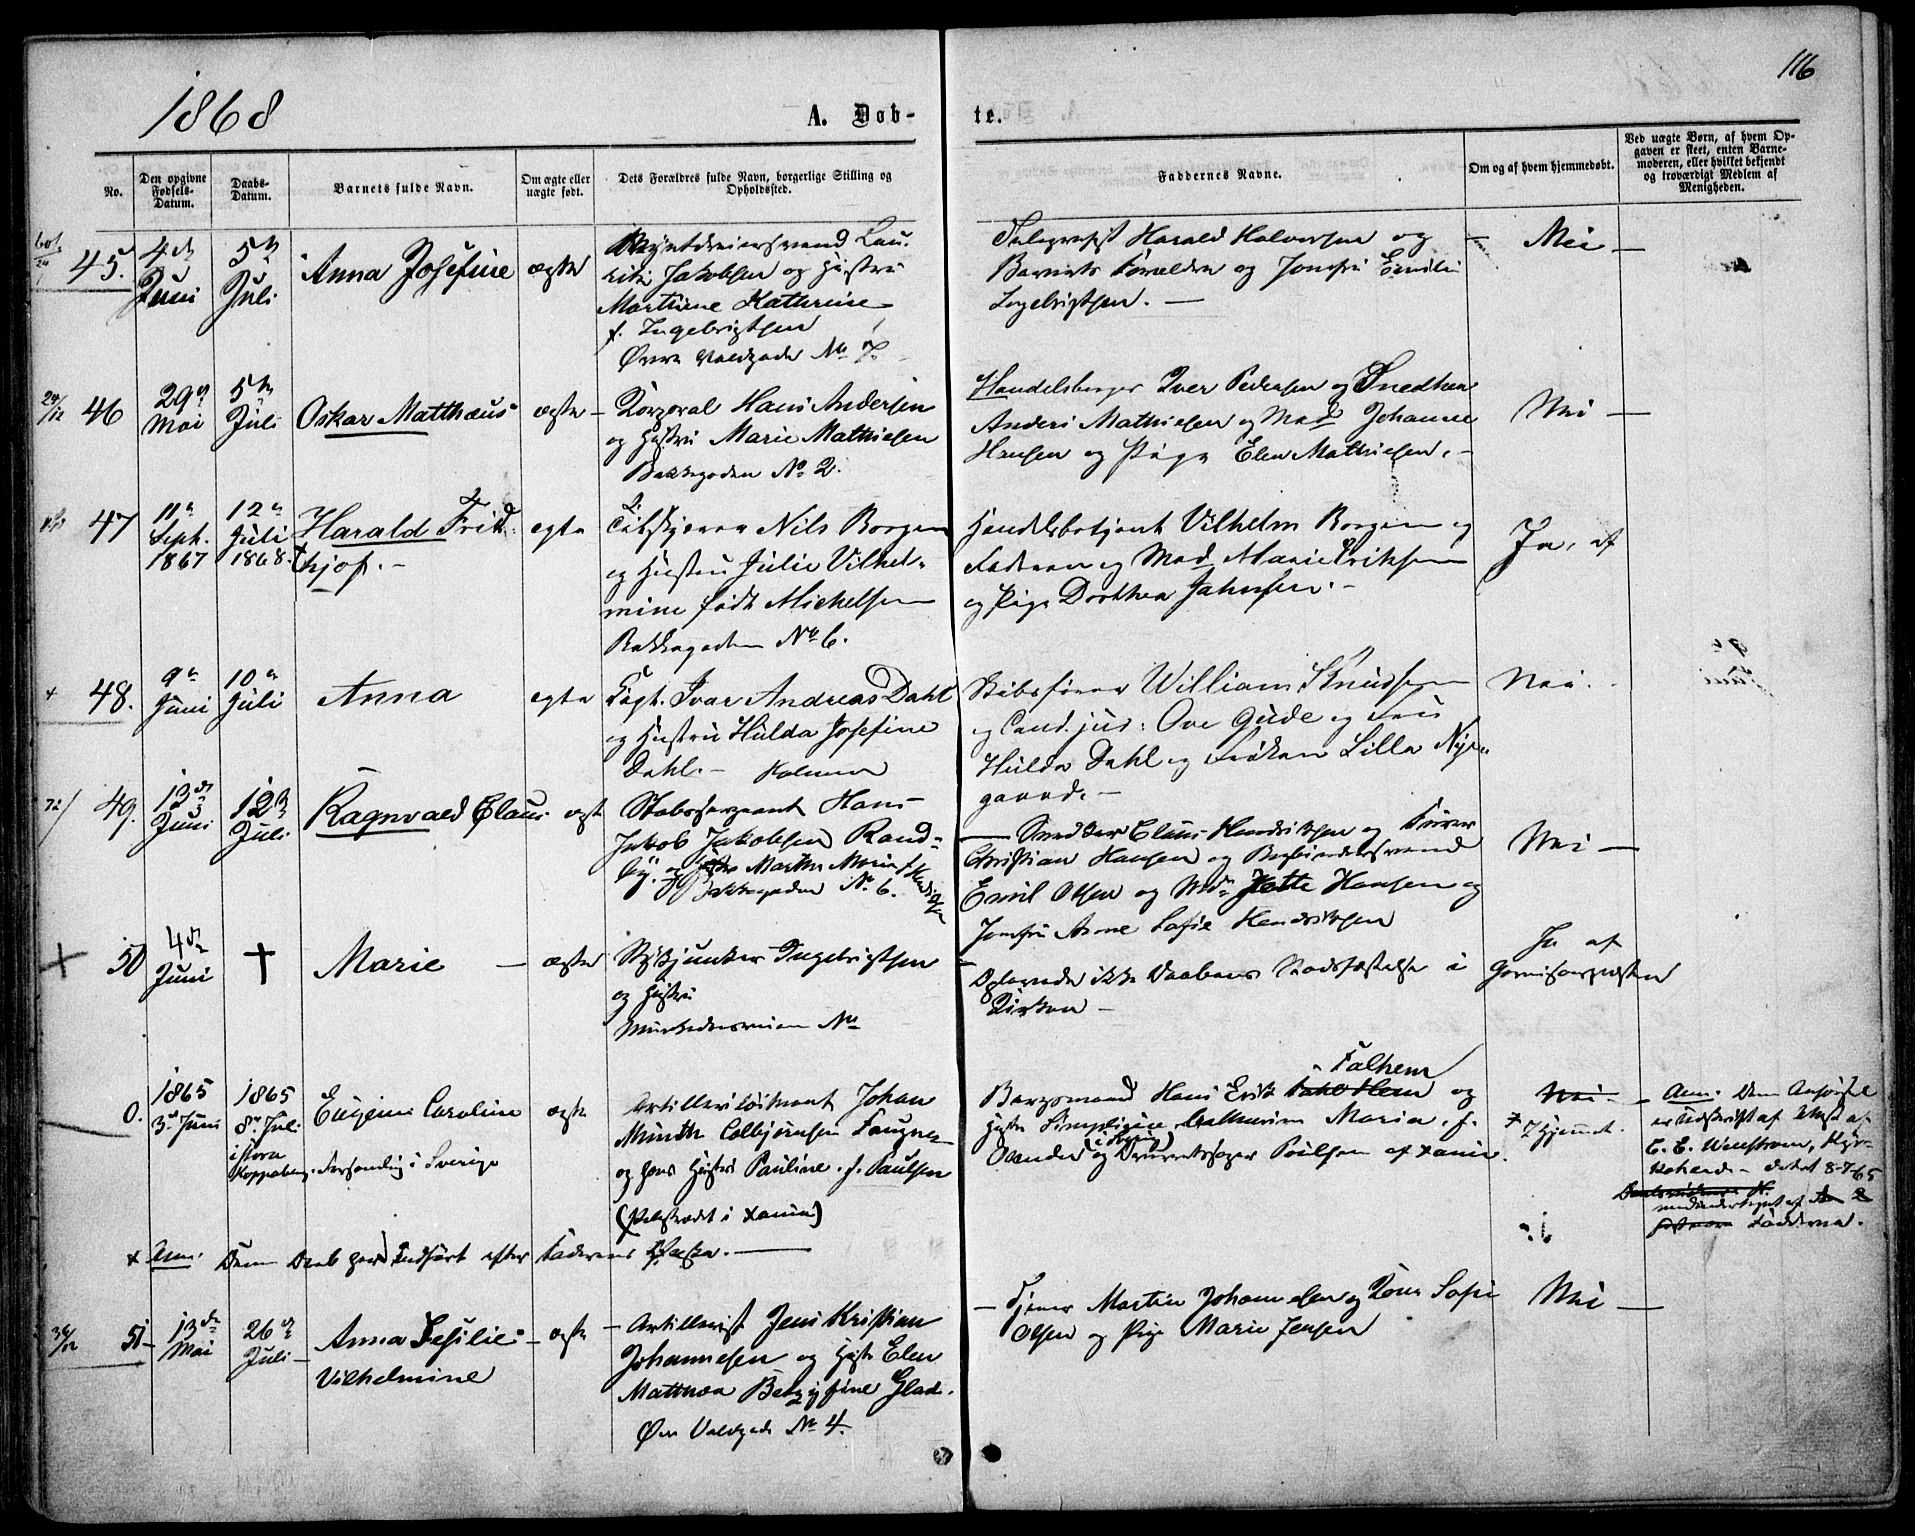 1868
A. Døb-
te.
116
No.
Den opgivne Fødsels-Datum.
Daabs-Datum.
Barnets fulde Navn.
Om ægte eller uægte født.
Dets Forældres fulde Navn, borgerlige Stilling og Opholdssted.
Faddernes Navne.
Om og af hvem hjemmedøbt.
Ved uægte Børn, af hvem Op-
gaven er skeet, enten Barne-
moderen, eller hvilket bekjendt
og troværdigt Medlem af
Menigheden.
45.
4de
Juni
5te
Juli
Anna Josefine
ægte
Lau-
ritz Jakobsen og Hustru
Martine Kathrine
f. Ingebrigtsen
Øvre Voldgade No 7.
Telegrafist Harald Halvorsen og
Barnets Forældre og Jomfru Emilie
Ingebrigtsen. —
Nei —
29/12
46
29de
Mai
5te
Juli
Oskar Matthæus
ægte —
Korporal Hans Andersen
og Hustru Marie Mathiesen
Bakkegaden No 2.
Handelsborger Iver Pedersen og Snedker
Anders Mathiesen og Mad Johanne
Hansen og Pige Elen Mathiesen. —
Nei —
47
11te
Sept.
1867
12te
Juli
1868.
Harald Frid-
tjof. —
egte
Nils Borgen
og Hustru Julie Vilhel-
mine født Michelsen
Bakkegaden No 6.
Handelsbetjent Vilhelm Borgen og
Faderen og Mad Marie Eriksen
og Pige Dorthea Jahnsen. —
Ja, af
x
48.
9de
Juni
10de
Juli
Anna
egte
Kapt. Ivar Andreas Dahl
og Hustru Hulda Josefine
Dahl. — Holmen
Skibsfører William Knudsen
og Cand. jur: Ove Gude og Fru
Hulda Dahl og Frøken Lilla Nye-
gaard. —
Nei. -
72/
49.
13de
Juni
12te
Juli
Ragnvald Claus
egte
Stabssergeant Hans
Jakob Jakobsen Rand-
by. og Hustru Marthe Marie f. Hendriksen
Bakkegaden No 6.
— Snedker Claus Hendriksen og Fører
Christian Hansen og Bogbindersvend
Emil Olsen og Mdm Jette Hansen og
Jomfru Anne Sofie Hendriksen
Nei —
+
50
4de
Juni
†
Marie —
ægte
Styrkjunker Ingebrigtsen
og Hustru
Munkedamsveien No
Oplevede ikke Daabens Stadfæstelse i
Kirken —
Ja af
Garnisonspræsten
0.
1865
3de Juni
1865
8de Juli
i Stora
Kopparberg
Eugenie Caroline
Forsamling i Sverige
ægte
Artilleri Løitnant Johan
Munth Colbjørnsen Faugnes
og hans Hustru Pauline. f. Paulsen
Falhem
Bergsmand Hans Erik og
Catharina Maria. f.
Poulsen af Xania.
Nei.
x Hjemmet.
Anm: Den Anførsel
er Udskrift af Attest af
datet 8-7-65
Fadderne.
x Anm: Denne Daab her Indført efter Faderens Ønske. —
51 -
13de
Mai
26de
Juli —
Anna Sesilie
Vilhelmine
— ægte
— Artillerist Jens Kristian
Johannesen og Hustru Elen
Matthea Bergithine Glad.
Øvre Voldgade No 4.
— Tjener Martin Johannesen og Kone Sofie
Olsen og Pige Marie Jensen
Nei —